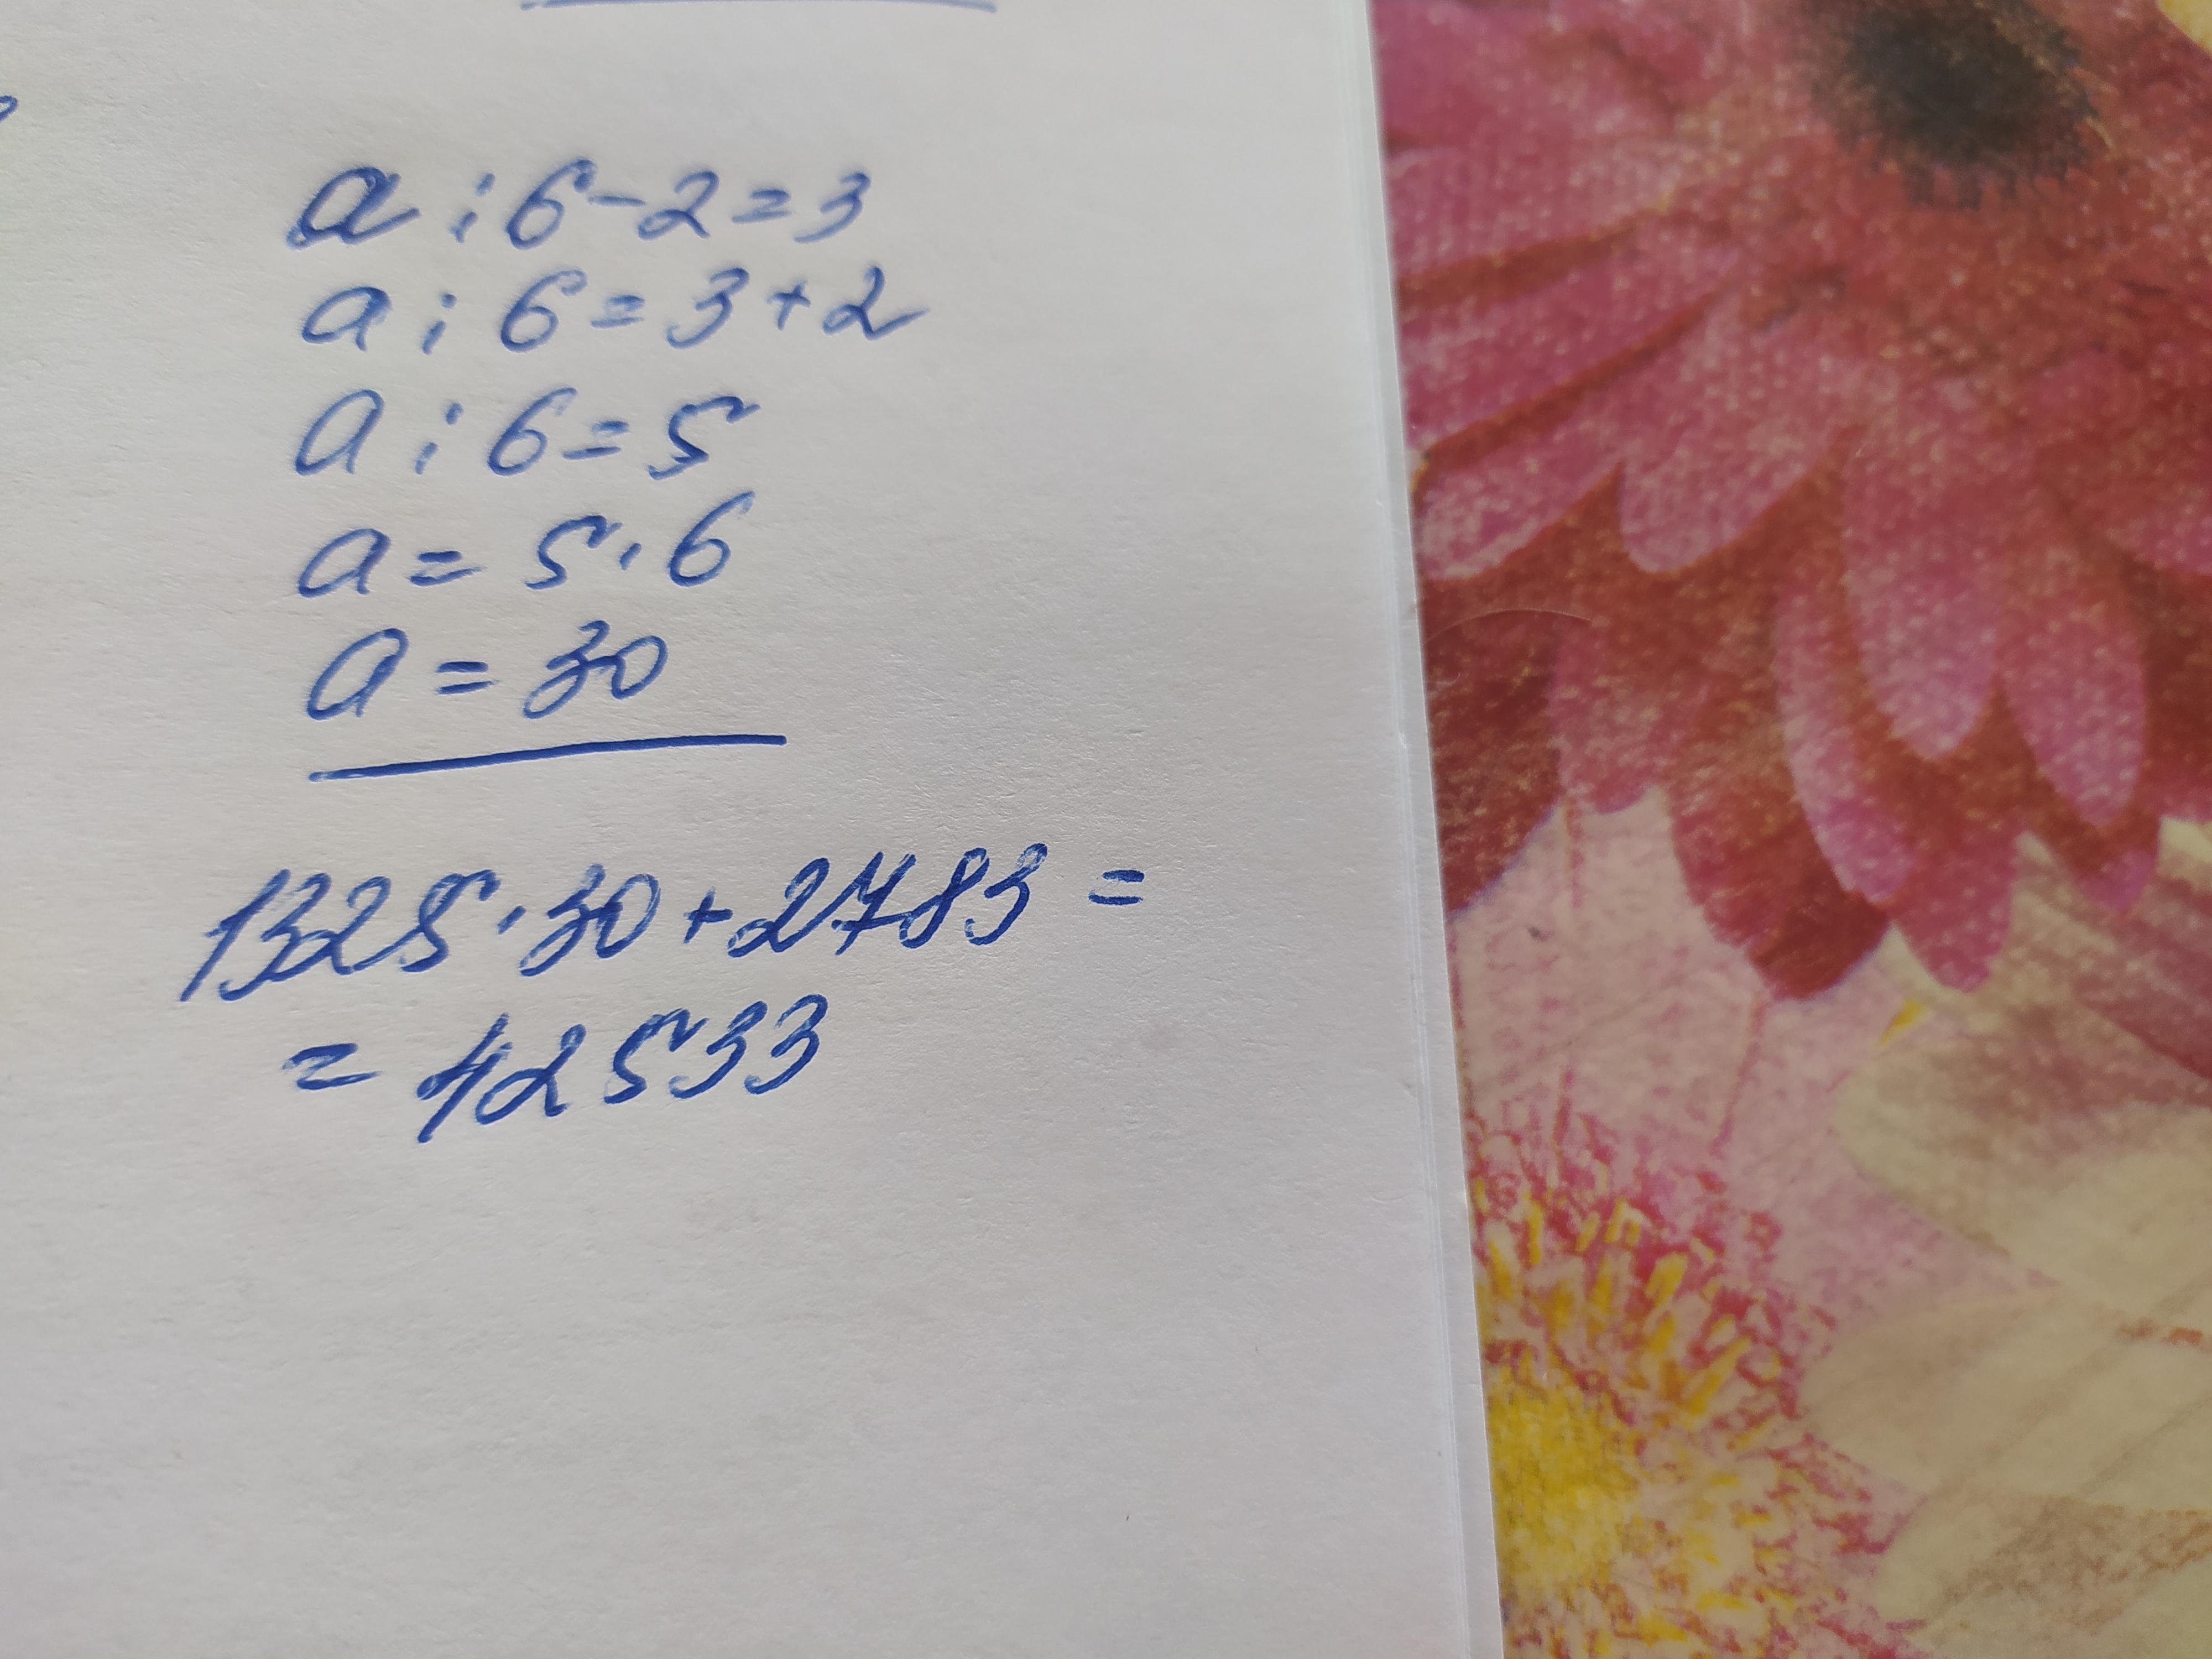 a : 6 - 2 = 3
a : 6 = 3 + 2
a : 6 = 5
a = 5 · 6
a = 30
1325 · 30 + 2783 =
= 42533